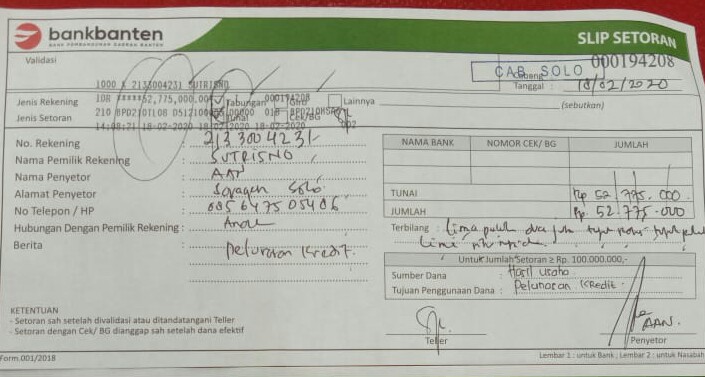 bankbanten
BANK PEMBANGUNAN DAERAH BANTEN
SLIP SETORAN
Validasi
000194208
CAB. SOLO
Cabang
Tanggal : 18/02/2020
1000 X 2133004231 SUTRISNO
108 *****52,775,000.00 000194208
Jenis Rekening : Tabungan Giro Lainnya (sebutkan)
Jenis Setoran : Tunai Cek/BG
14:08:21 18-02-2020 18-02-2020 18-02-2020 002
No. Rekening : 2133004231
Nama Pemilik Rekening : SUTRISNO
Nama Penyetor : AAN
Alamat Penyetor : Sragen Solo
No Telepon / HP : 085647505406
Hubungan Dengan Pemilik Rekening : Anak
Berita : Pelunasan Kredit.
NAMA BANK NOMOR CEK/ BG JUMLAH
TUNAI Rp 52.775.000
JUMLAH Rp. 52.775.000
Terbilang : Lima puluh dua juta tujuh ratus tujuh puluh
lima ribu rupiah
Untuk Jumlah Setoran ≥ Rp. 100.000.000,-
Sumber Dana : Hasil usaha
Tujuan Penggunaan Dana : Pelunasan Kredit
KETENTUAN
- Setoran sah setelah divalidasi atau ditandatangani Teller
- Setoran dengan Cek/ BG dianggap sah setelah dana efektif
AAN.
Teller Penyetor
Form.001/2018
Lembar 1 : untuk Bank ; Lembar 2 : untuk Nasabah